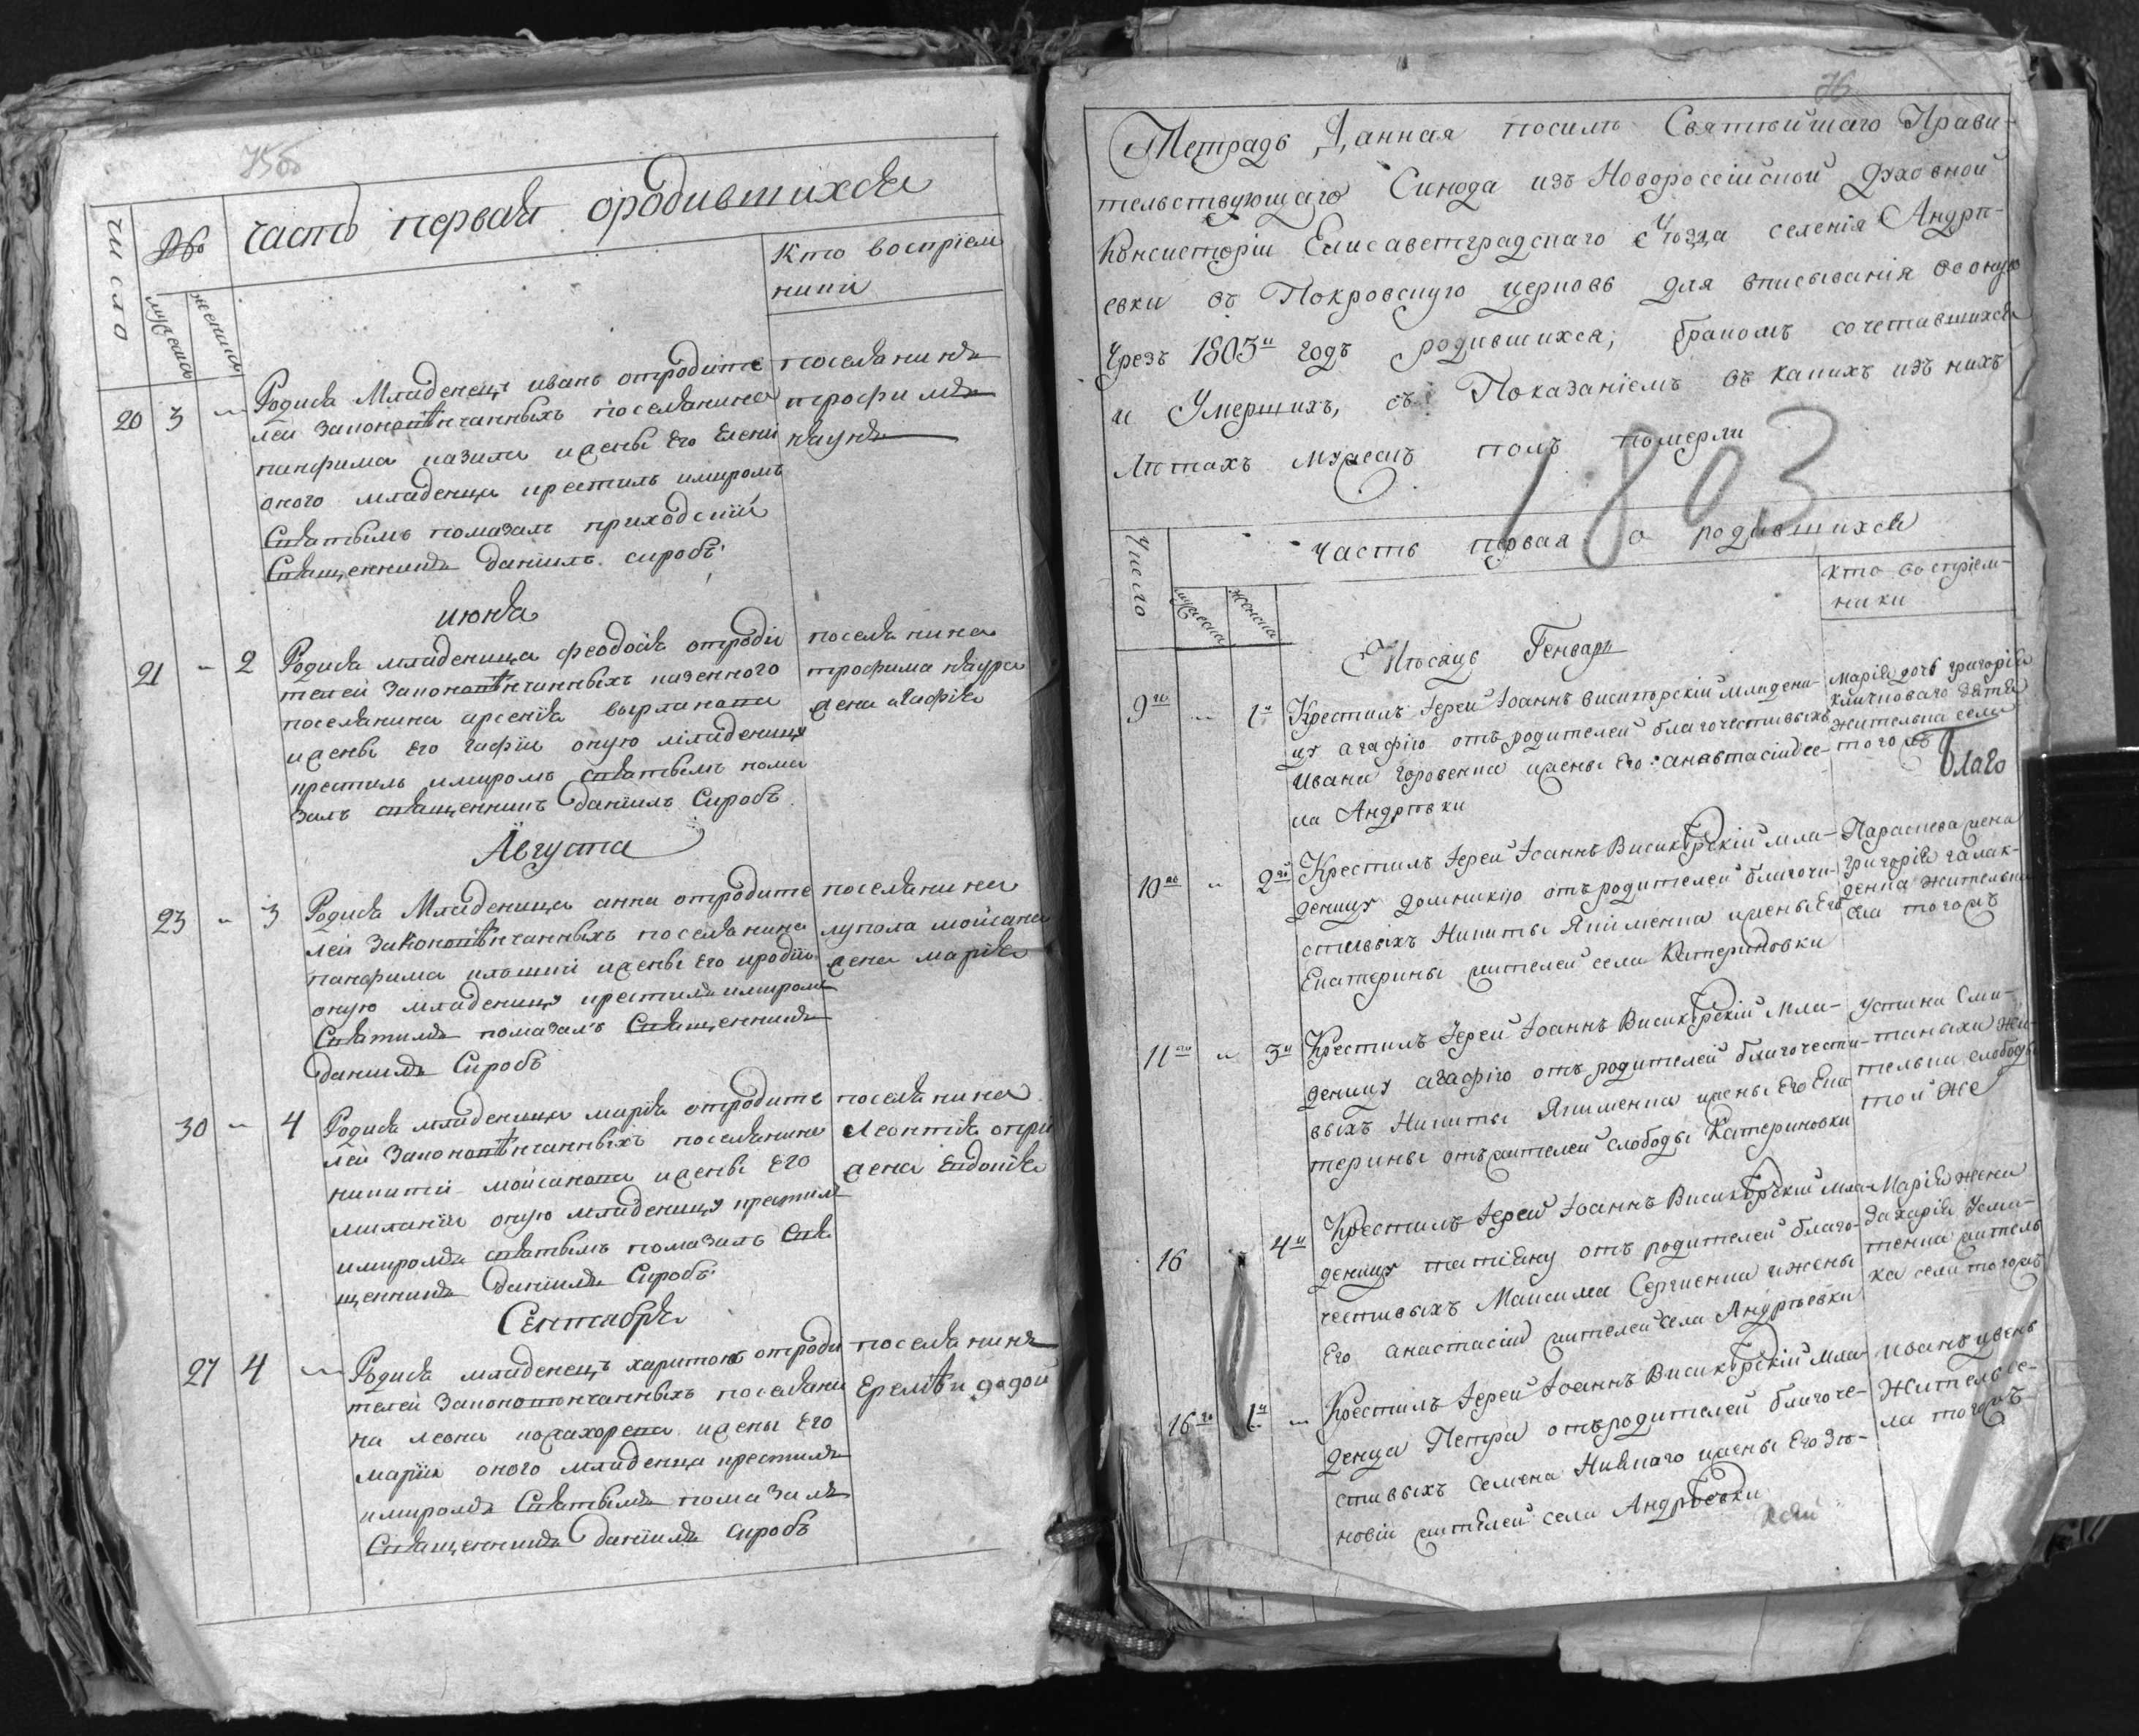 75об
часть первая ородившихся
число
№
мужеска
женска
Кто восприем
ники
20 3 "
Родися Младенецъ иванъ отродите
лей законовѣнчанныхъ поселянина
панфима казила ижены Его Елени
оного младенца крестилъ имиромъ
Святымъ помазалъ приходскїй
Священникъ данїилъ сиробъ
поселянинъ
трофимъ
каунъ
июня
21 - 2
Родися младеница феодосїя отроди
телей законовѣнчанныхъ казенного
поселянина арсенїя
ижены Его гафїи оную младеницу
крестилъ имиромъ святымъ пома
залъ священникъ данїилъ Сиробъ
поселянина
трофима кауна
жена агафїя
Августа
23 " 3
Родися Младеница анна отродите
лей законовѣнчанныхъ поселянина
панфима ижены Его
оную младеницу крестилъ имиромъ
Святимъ помазалъ Священникъ
данїилъ Сиробъ
поселянина
мойсана
жена марїя
30 " 4
Родися младеница марїя отродите
лей законовѣнчанныхъ поселянина
никити мойсаката ижены Его
миланїи оную младеницу крестилъ
имиромъ святымъ помазалъ Свя
щенникъ данїилъ Сиробъ
поселянина
Леонтїя
жена Евдокїя
Сентабря
27 4 "
Родися младенецъ харитонъ отроди
телей законовѣнчанныхъ поселяни
на леона ижены Его
марїи оного младенца крестилъ
имиромъ Святымъ помазалъ
Священникъ данїилъ сиробъ
поселянинъ
Еремѣй
76
Тетрадь Данная посилѣ Святѣйшаго Прави-
тельствующаго Синода изъ Новороссійской духовной
Консисторіи Елисаветградскаго уѣзда селенія Андрѣ-
евки въ Покровскую церковь для вписыванія вооную
Чрезъ 1803й годъ родившихся; бракомъ сочетавшихся
и Умершихъ, съ Показаніемъ въ какихъ изъ нихъ
лѣтахъ мужескъ полъ померли
1803
часть первая о родившихся
Число
мужеска
женска
кто воспріем-
ники
Мѣсяцъ Генварь
9го " 1я
Крестилъ Іерей Іоаннъ Висикирскій младени-
цу агафію отъ родителей благочестивыхъ
Ивана горовенка ижены Его: анавтасіи се-
ла Андрѣвки
Марія дочь григорія
жителька села
тогожъ
благо
10го " 2я
Крестилъ Іерей Іоаннъ Висикирскій мла-
деницу домникію отъ родителей благоче-
стивыхъ Никиты Якименка ижены Его
Екатерины жителей села Катериновки
Параскева жена
григорія галак-
денка жителька
села тогожъ
11го " 3я
Крестилъ Іерей Іоаннъ Висикирскій мла-
деницу агафію отъ родителей благочести-
выхъ Никиты Якименка ижены Его Ека
терины отъ жителей слободы Катериновки
устина Сми-
таныха жи-
телька слободы
той же
16 4я
Крестилъ Іерей Іоаннъ Висикирскій мла-
деницу татіану отъ родителей благо-
честивыхъ Максима Сергиенка ижены
Его анастасіи жителей села Андрѣевки
Марія жена
Захарія
тенка житель
ка села тогожъ
16го 1й "
Крестилъ Іерей Іоаннъ Висикирскій мла-
денца Петра отъ родителей благоче-
стивыхъ Семена ижены Его Зѣ-
новіи жителей села Андрѣевки
иванъ
житель се-
ла тогожъ